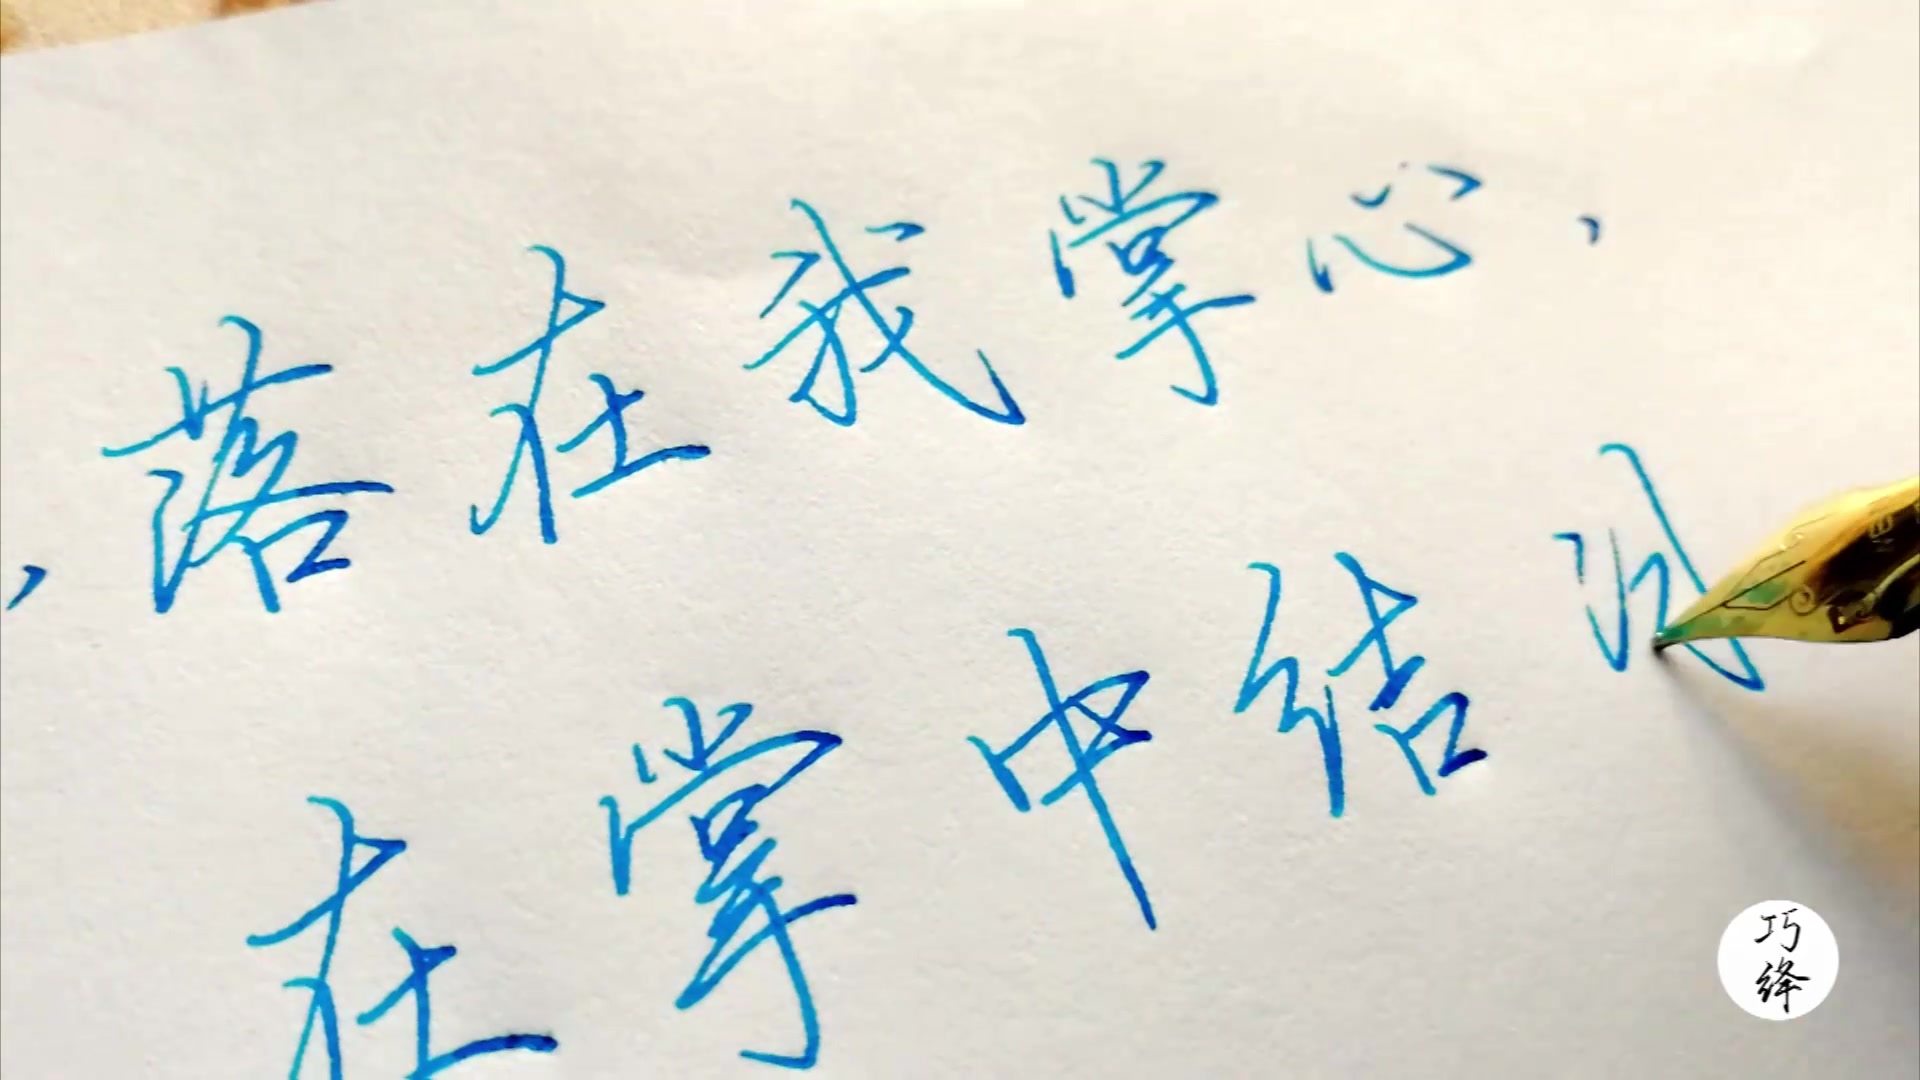 ，落在我掌心，
在掌中结
巧绛